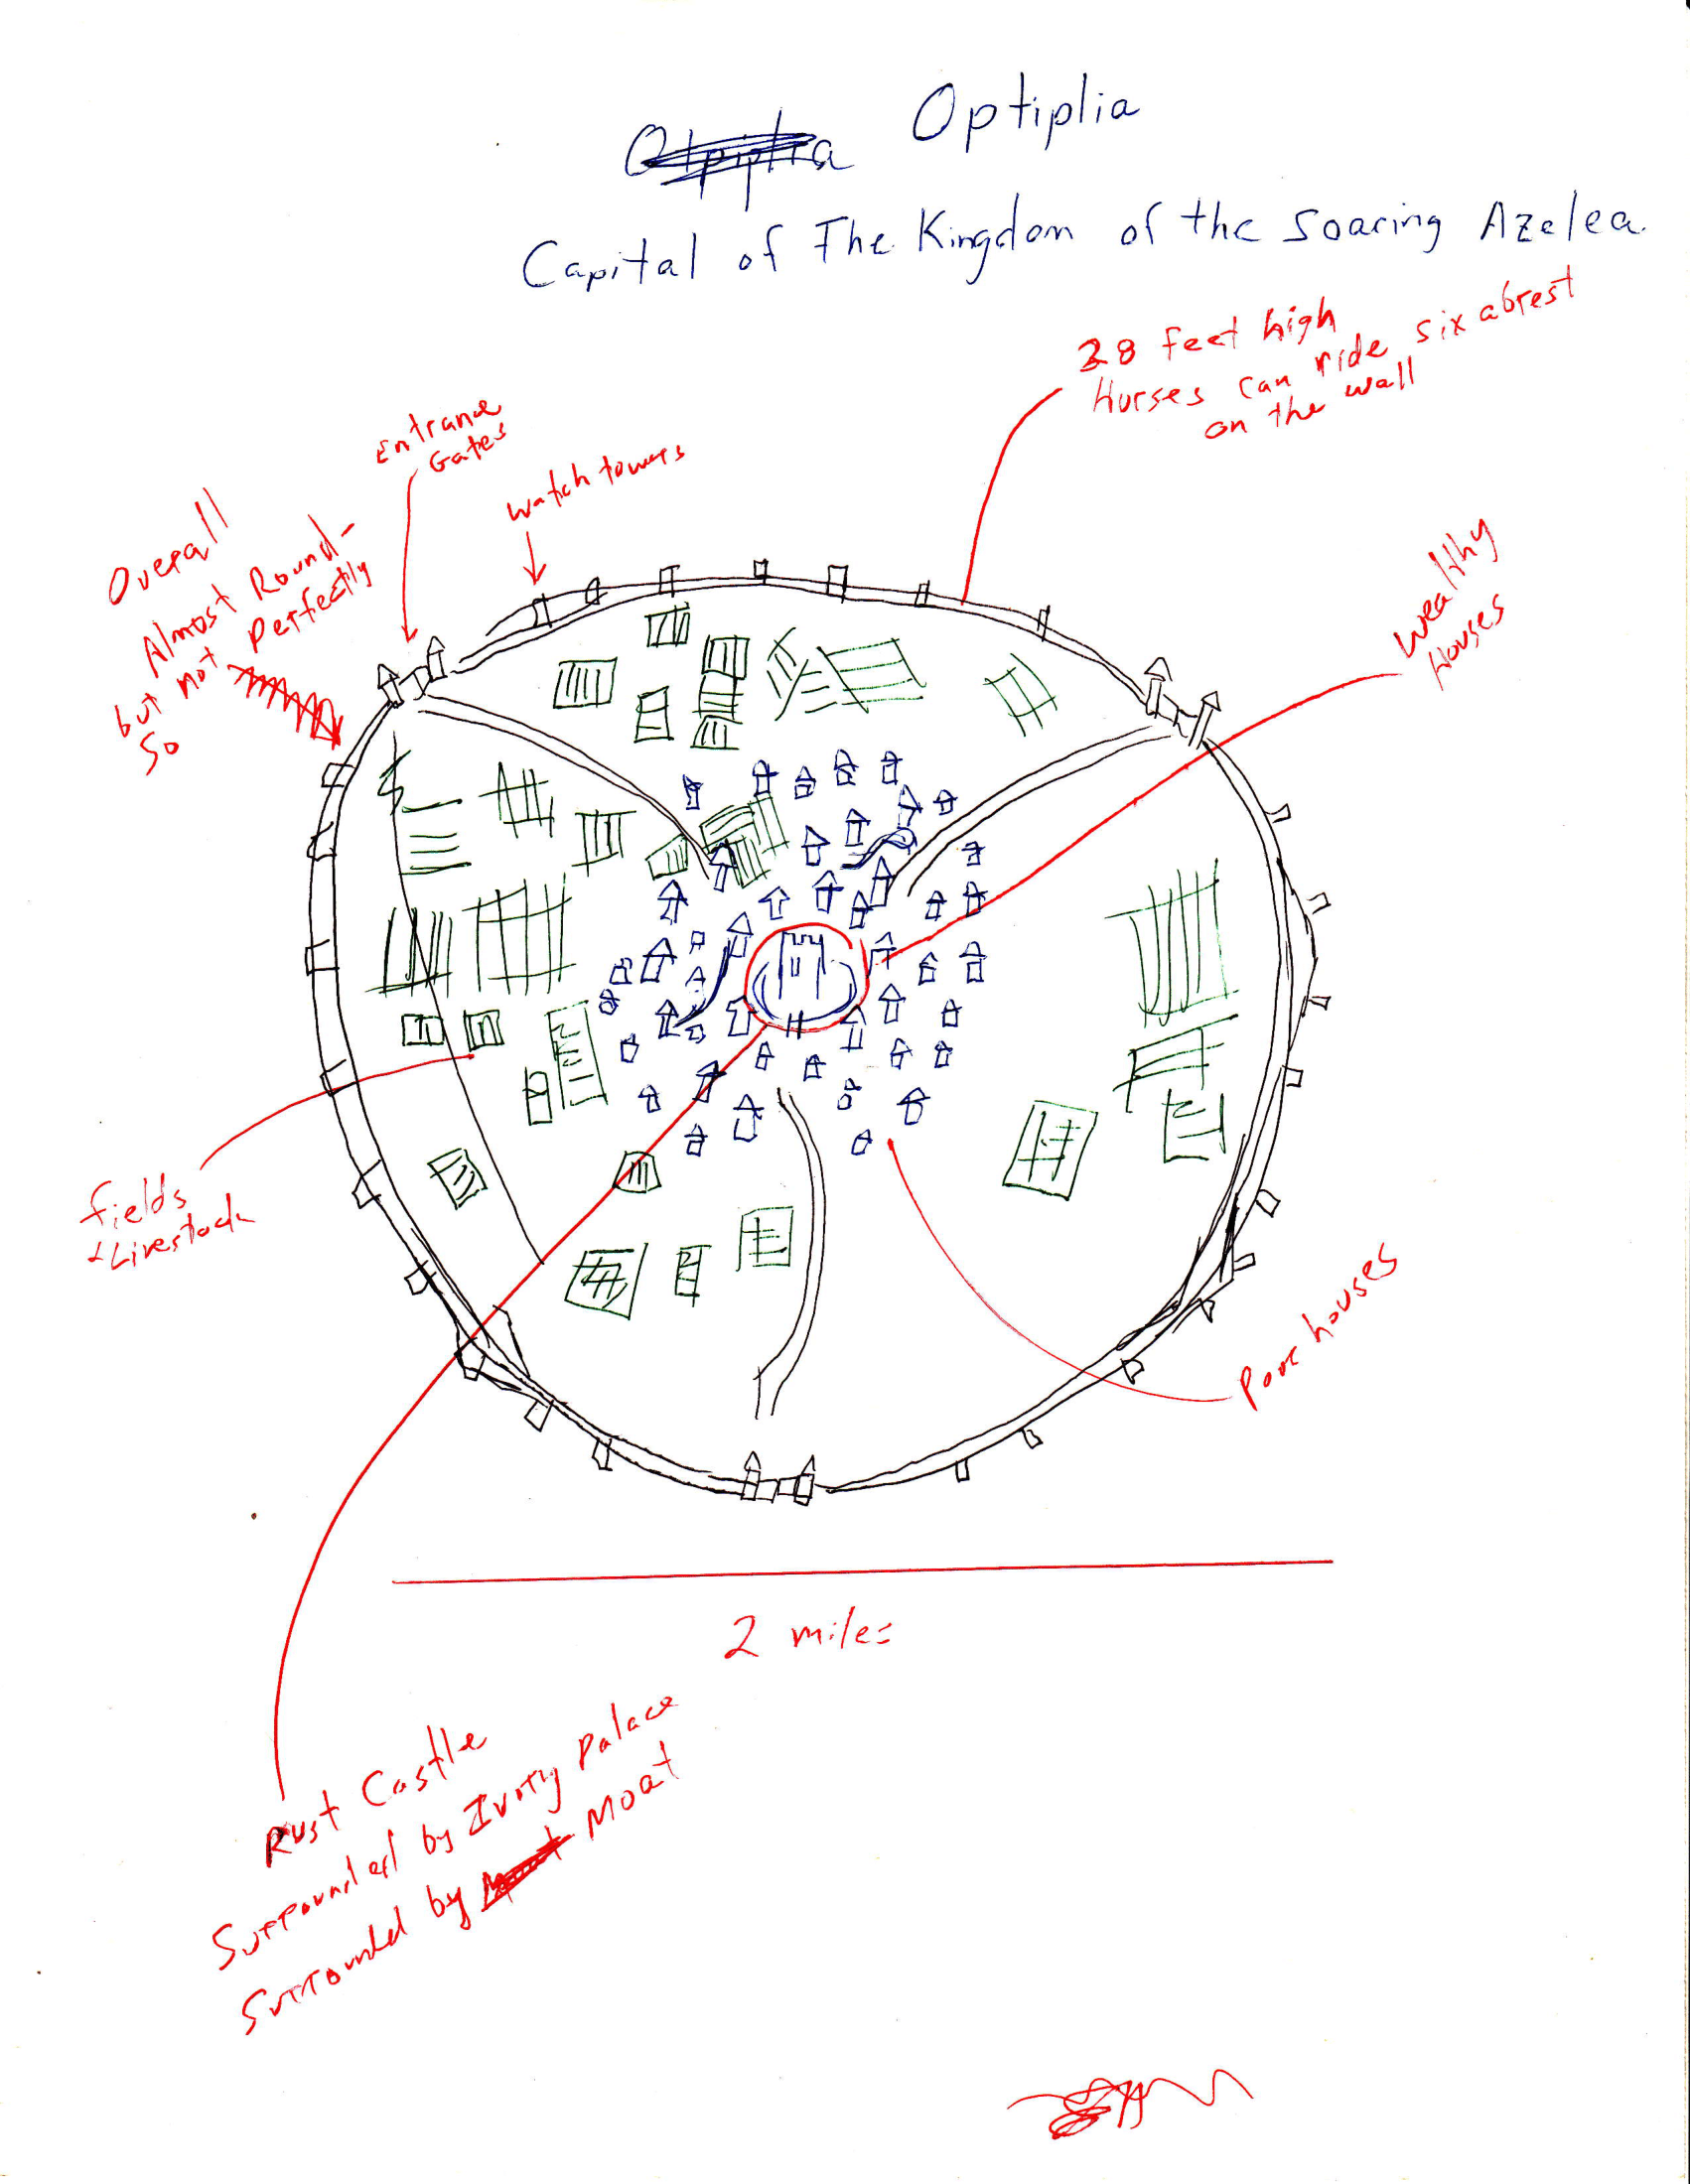 Optiplia
Capital of The Kingdom of the Soaring Azelea
38 feet high
Horses can ride six abrest
on the wall
Entrance
Gates
watch towers
Overall
Almost Round-
but not perfectly
So
Wealthy
Houses
fields
+ Livestock
Poor houses
2 miles
Rust Castle
Surrounded by Ivory Palace
Surrounded by Moat